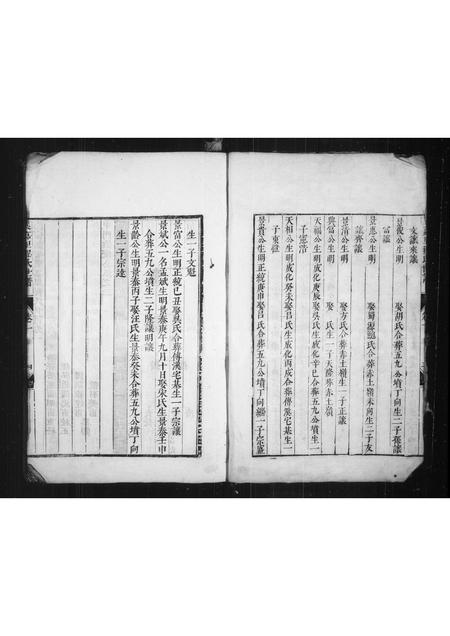 文讓來讓
景俊公生明 娶胡氏合葬五九公墳丁向生二子孫讓
富讓
景惠公生明 娶蜀源鮑氏合葬赤土嶺未向生二子友
讓齊讓
景清公生明 娶方氏合葬赤土嶺生一子正讓
興富公生明 娶 氏生一子天隆葬赤土嶺
天福公生明成化庚辰娶吳氏生成化辛巳合葬五九公墳生一
子憲浩
天相公生明成化癸未娶呂氏生成化丙戌合葬傅溪宅基生一
子東
景貴公生明正統庚申娶呂氏合葬五九公墳丁向繼一子宗
生一子文魁
景富公生明正統己丑娶吳氏合葬傅溪宅基生一子宗讓
景斌公一名孟斌生明景泰庚午九月十日娶宋氏生景泰壬申
合葬五九公墳生二子隆讓明讓
景齡公生明景泰丙子娶汪氏生景泰癸未合葬五九公墳丁向
生一子宗遠